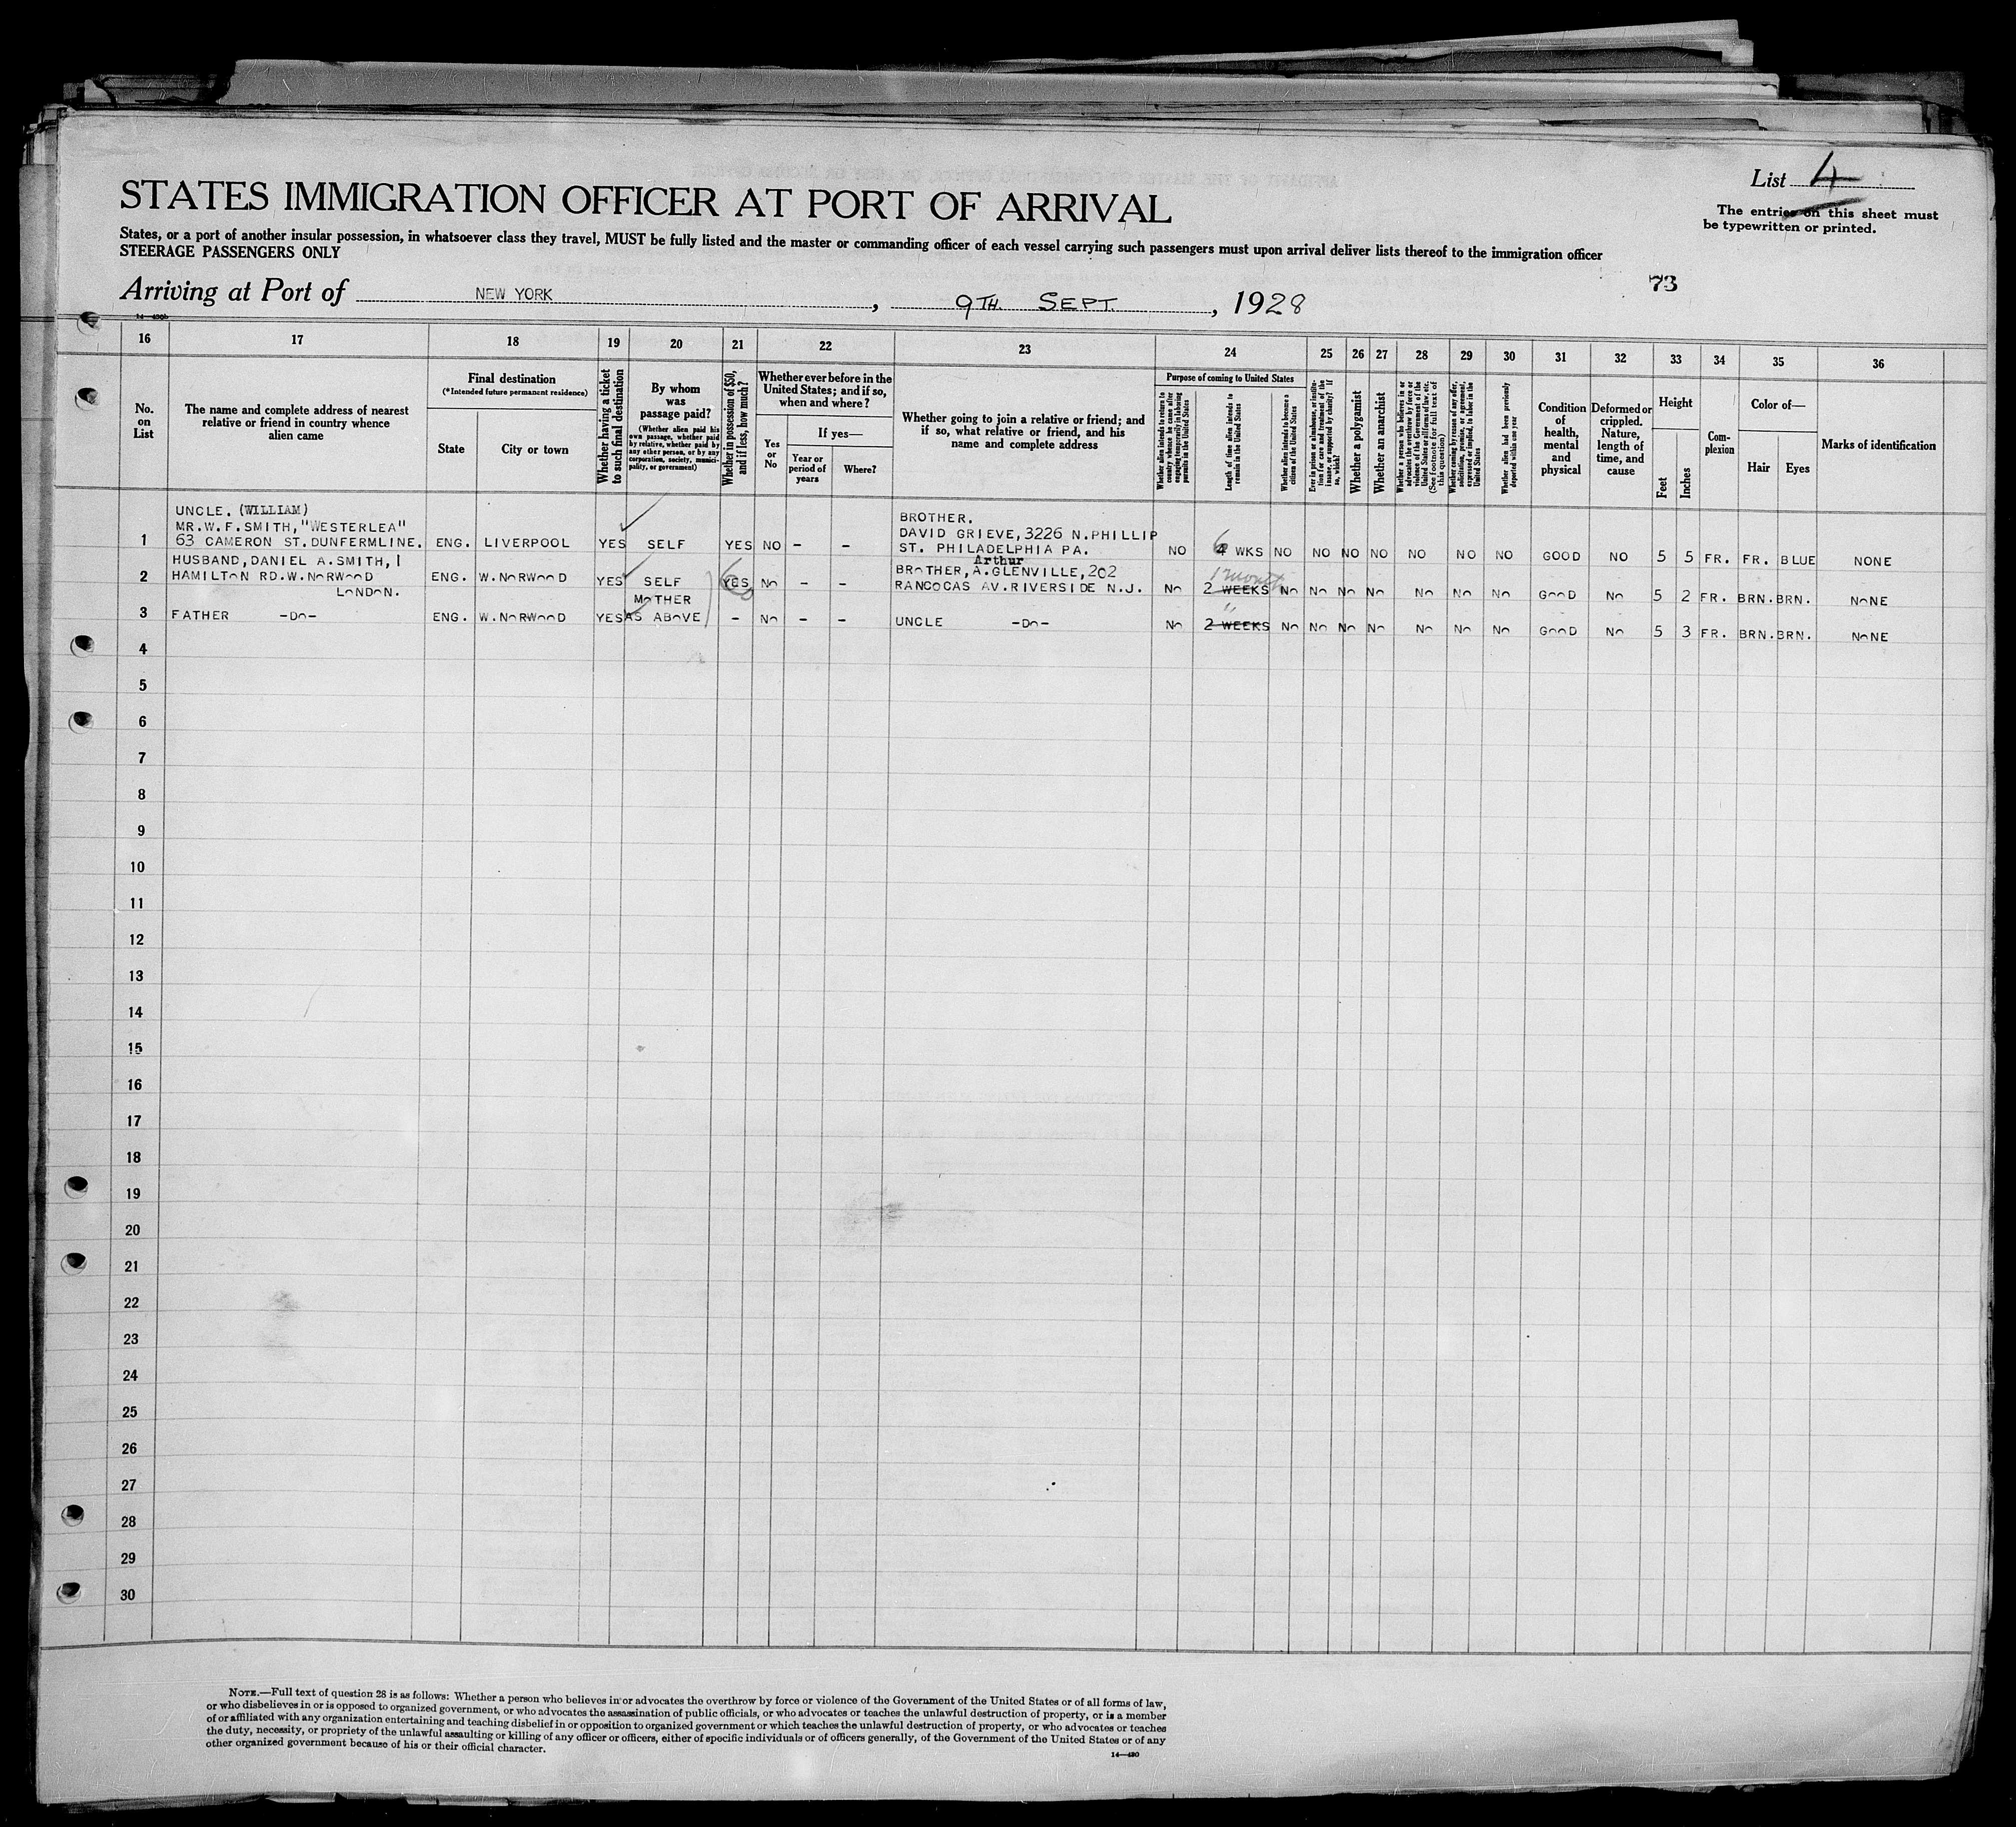 List 4
The entries on this sheet must
be typewritten or printed.
STATES IMMIGRATION OFFICER AT PORT OF ARRIVAL
States, or a port of another insular possession, in whatsoever class they travel, MUST be fully listed and the master or commanding officer of each vessel carrying such passengers must upon arrival deliver lists thereof to the immigration officer
STEERAGE PASSENGERS ONLY
73
Arriving at Port of NEW YORK, 9TH SEPT., 1928
14—430b
16 17 18 19 20 21 22 23 24 25 26 27 28 29 30 31 32 33 34 35 36
No. on List
The name and complete address of nearest relative or friend in country whence alien came
Final destination
(*Intended future permanent residence)
State
City or town
Whether having a ticket to such final destination
By whom was passage paid?
(Whether alien paid his own passage, whether paid by relative, whether paid by any other person, or by any corporation, society, municipality, or government)
Whether in possession of $50, and if less, how much?
Whether ever before in the United States; and if so, when and where?
Yes or No
If yes—
Year or period of years
Where?
Whether going to join a relative or friend; and if so, what relative or friend, and his name and complete address
Purpose of coming to United States
Whether alien intends to return to country whence he came after engaging temporarily in laboring pursuits in the United States
Length of time alien intends to remain in the United States
Whether alien intends to become a citizen of the United States
Ever in prison or almshouse, or institution for care and treatment of the insane, or supported by charity? If so, which?
Whether a polygamist
Whether an anarchist
Whether a person who believes in or advocates the overthrow by force or violence of the Government of the United States or all forms of law, etc. (See footnote for full text of this question)
Whether coming by reason of any offer, solicitation, promise, or agreement, expressed or implied, to labor in the United States
Whether alien had been previously deported within one year
Condition of health, mental and physical
Deformed or crippled. Nature, length of time, and cause
Height
Feet
Inches
Complexion
Color of—
Hair
Eyes
Marks of identification
UNCLE. (WILLIAM) BROTHER.
MR.W.F.SMITH,"WESTERLEA" DAVID GRIEVE,3226 N.PHILLIP
1 63 CAMERON ST.DUNFERMLINE. ENG. LIVERPOOL YES SELF YES NO – – ST. PHILADELPHIA PA. NO 6 4 WKS NO NO NO NO NO NO NO GOOD NO 5 5 FR. FR. BLUE NONE
HUSBAND,DANIEL A.SMITH,1 Arthur BROTHER,A.GLENVILLE,202
2 HAMILTON RD.W.NORWOOD ENG. W.NORWOOD YES SELF YES NO – – RANCOCAS AV.RIVERSIDE N.J. NO 1 month 2 WEEKS NO NO NO NO NO NO NO GOOD NO 5 2 FR. BRN. BRN. NONE
LONDON. MOTHER
3 FATHER -DO- ENG. W.NORWOOD YES AS ABOVE – NO – – UNCLE -DO- NO " 2 WEEKS NO NO NO NO NO NO NO GOOD NO 5 3 FR. BRN. BRN. NONE
4
5
6
7
8
9
10
11
12
13
14
15
16
17
18
19
20
21
22
23
24
25
26
27
28
29
30
NOTE.—Full text of question 28 is as follows: Whether a person who believes in or advocates the overthrow by force or violence of the Government of the United States or of all forms of law,
or who disbelieves in or is opposed to organized government, or who advocates the assassination of public officials, or who advocates or teaches the unlawful destruction of property, or is a member
of or affiliated with any organization entertaining and teaching disbelief in or opposition to organized government or which teaches the unlawful destruction of property, or who advocates or teaches
the duty, necessity, or propriety of the unlawful assaulting or killing of any officer or officers, either of specific individuals or of officers generally, of the Government of the United States or of any
other organized government because of his or their official character.
14—430